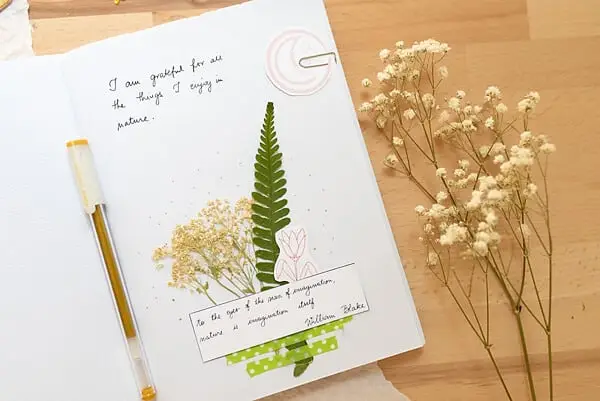 I am grateful for all
the things I enjoy in
nature.
to the eyes of the man of imagination,
nature is imagination itself
William Blake